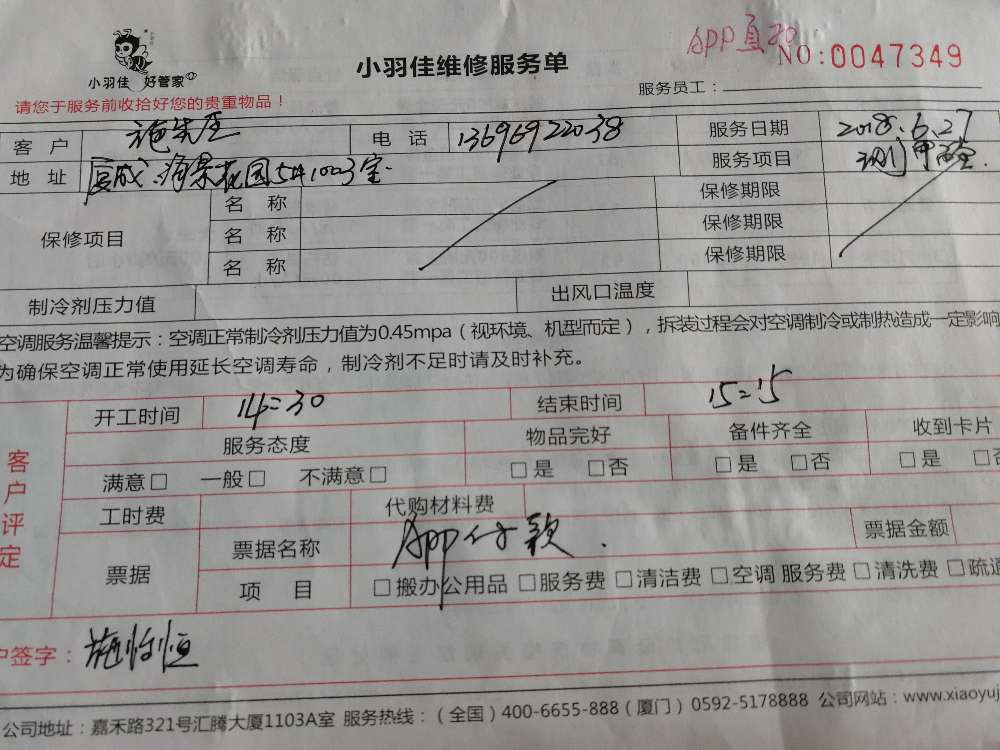 APP直
NO:0047349
小羽佳 好管家
小羽佳维修服务单
服务员工：
请您于服务前收拾好您的贵重物品！
客户 施先生 电话 13696922038 服务日期 2018.6.27
地址 夏成海景花园5#1003室 服务项目 测甲醛
保修项目 名称 保修期限
名称 保修期限
名称 保修期限
制冷剂压力值 出风口温度
空调服务温馨提示：空调正常制冷剂压力值为0.45mpa（视环境、机型而定），拆装过程会对空调制冷或制热造成一定影响
为确保空调正常使用延长空调寿命，制冷剂不足时请及时补充。
客户评定
开工时间 14=30 结束时间 15=15
服务态度 物品完好 备件齐全 收到卡片
满意□ 一般□ 不满意□ □是 □否 □是 □否 □是 □否
工时费 代购材料费
票据 票据名称 APP付款. 票据金额
项目 □搬办公用品 □服务费 □清洁费 □空调服务费 □清洗费 □疏通
户签字：施怡恒
公司地址：嘉禾路321号汇腾大厦1103A室 服务热线：（全国）400-6655-888（厦门）0592-5178888 公司网站：www.xiaoyuj